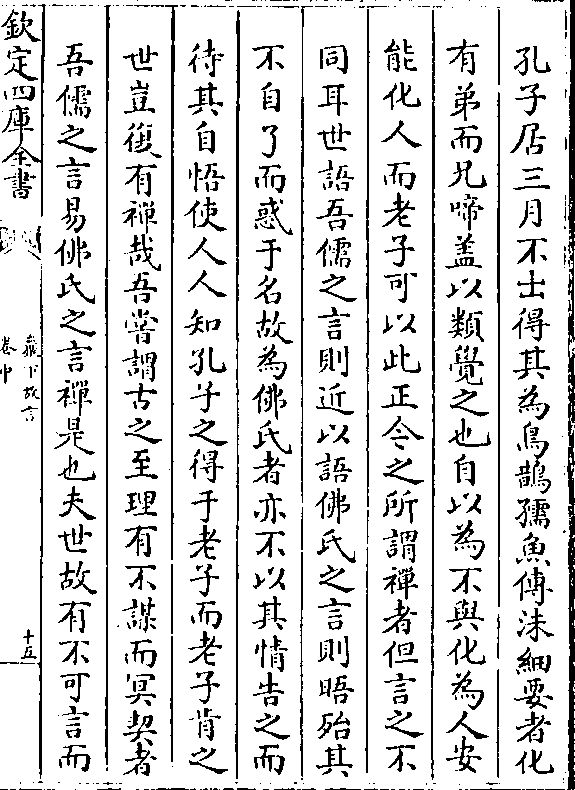 孔子居三月不士得其為烏鵲孺魚傅沫細要者化
有弟而兄啼蓋以類覺之也自以為不與化為人安
能化人而老子可以此正令之所謂禪者但言之不
同耳世語吾儒之言則近以語佛氏之言則晤殆其
不自了而惑于名故為佛氏者亦不以其情告之而
待其自悟使人人知孔子之得于老子而老子肯之
世豈復有禪哉吾嘗謂古之至理有不謀而冥契者
吾儒之言易佛氏之言禪是也夫世故有不可言而
欽定四庫全書
卷中
十五